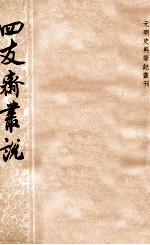 元明史料筆記叢刊
四友齋叢說